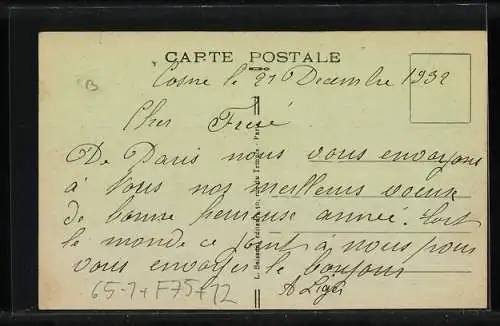 CARTE POSTALE
B
Cosne le 21 Decembre 1932
Cher Freré
De Paris nous vous envoyons
à Vous nos meilleurs voeux
de bonne heureuse anneé. tout
le monde ce joint à nous pour
vous envoyer le bonjour
A Liger
65-7+ F75+12